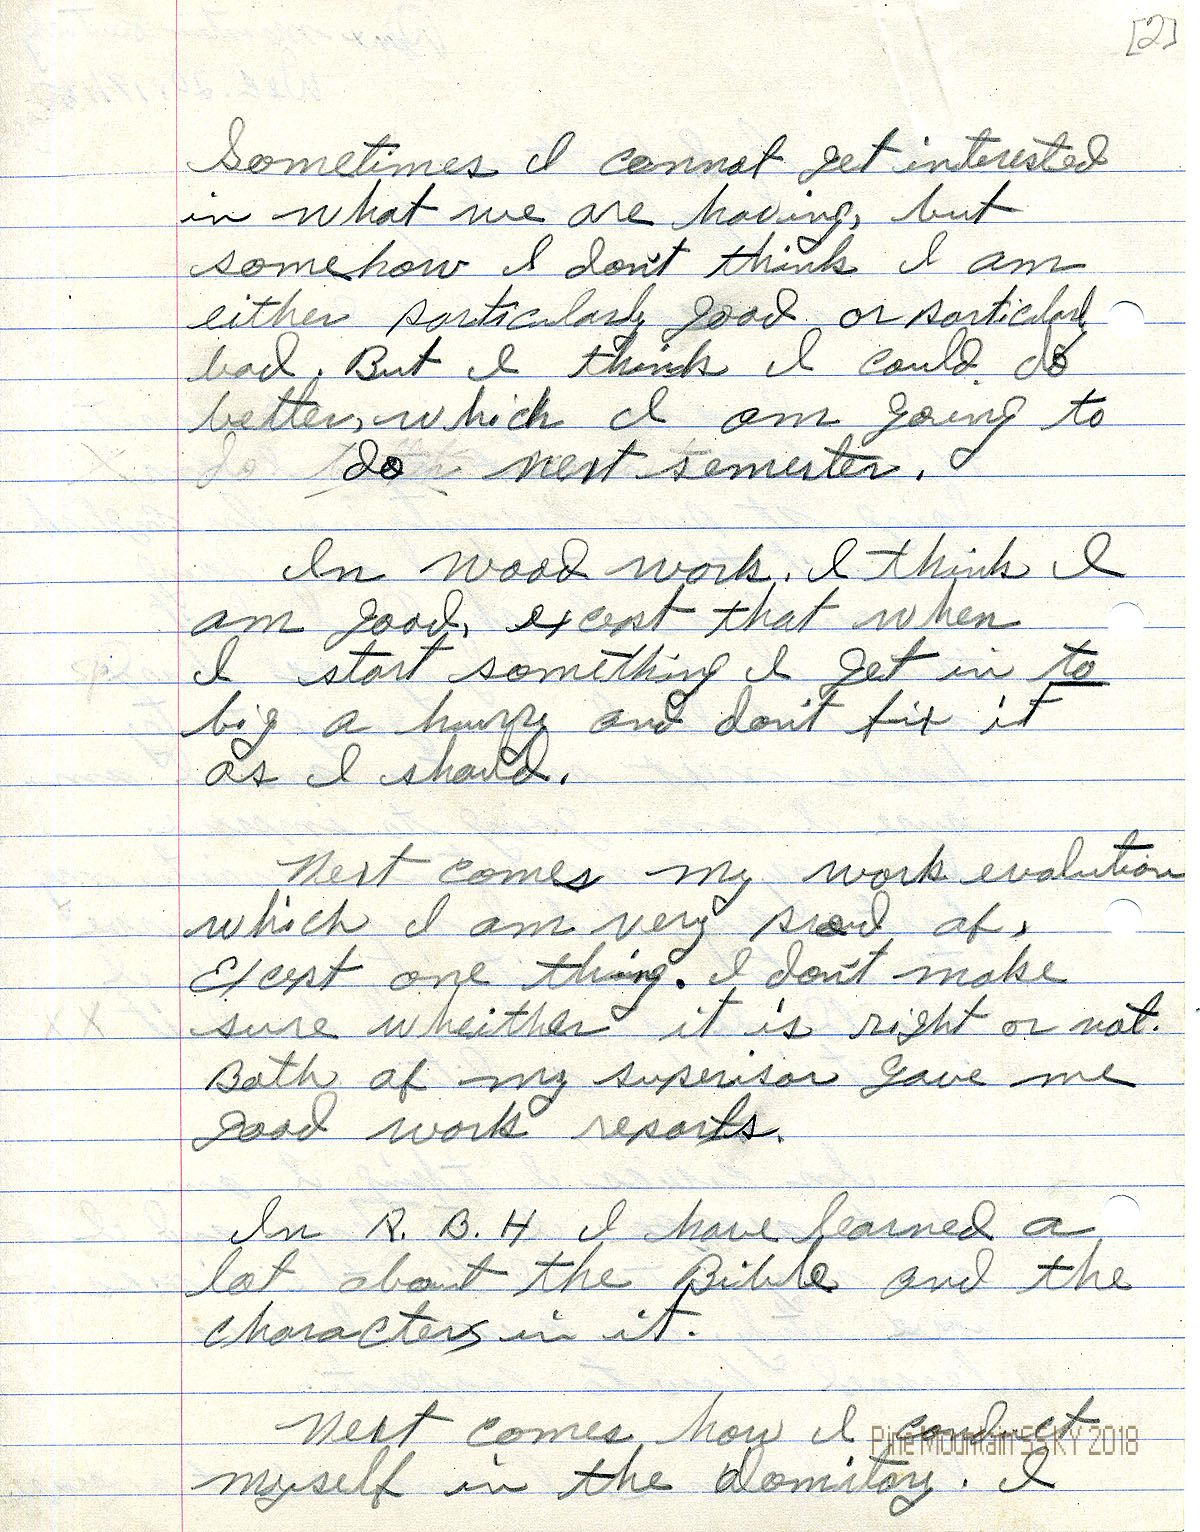 [2]
Sometimes I cannot get interested
in what we are having, but
somehow I don't think I am
either particularly good or particularly
bad. But I think I could do
better, which I am going to
do next semester.
In wood work. I think I
am good, except that when
I start something I get in to
big a hurry and don't fix it
as I should.
Next comes my work evalution
which I am very proud of,
Except one thing. I don't make
sure wheither it is right or not.
Both of my superisor gave me
good work reports.
In R. B. H I have learned a
lot about the Bible and the
characters in it.
Next comes how I conduct
Pine Mountain SSKY 2018
myself in the domitory. I